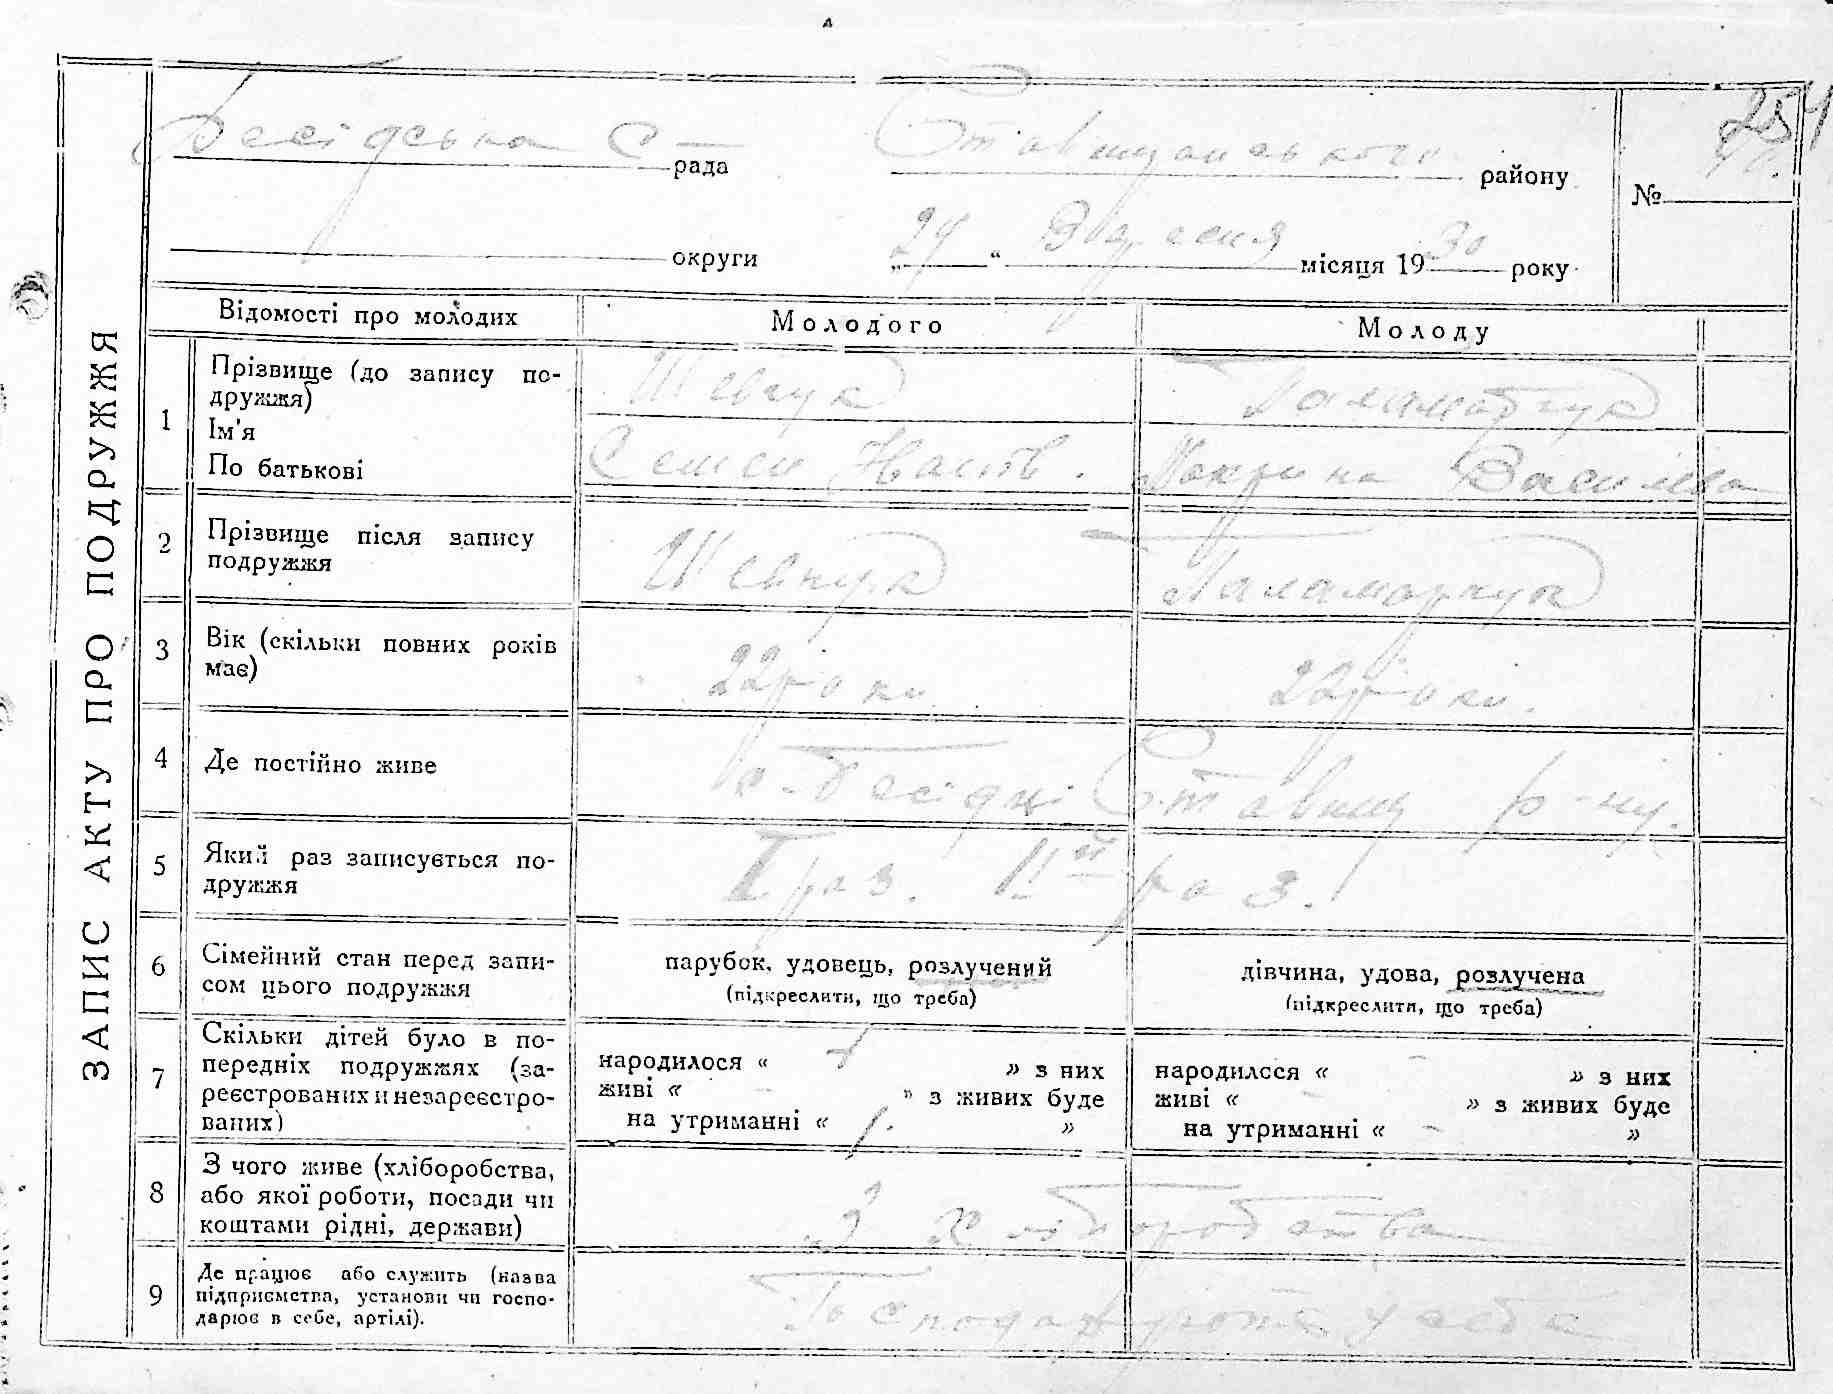 254
Бесідська С- рада Ставищанського району №
округи „24“ Вересня місяця 1930 року
ЗАПИС АКТУ ПРО ПОДРУЖЖЯ
Відомості про молодих Молодого Молоду
1 Прізвище (до запису по-
дружжя) Шевчук Паламарчук
Ім'я
По батькові Семен Мокрина Василівна
2 Прізвище після запису
подружжя Шевчук Паламарчук
3 Вік (скільки повних років
має) 22 роки 22 роки.
4 Де постійно живе с. Бесідці Ставищ р-ну.
5 Який раз записується по-
дружжя II раз. II раз.
6 Сімейний стан перед запи-
сом цього подружжя
парубок, удовець, розлучений
(підкреслити, що треба)
дівчина, удова, розлучена
(підкреслити, що треба)
7 Скільки дітей було в по-
передніх подружжях (за-
реєстрованих и незареєстро-
ваних)
народилося « 1 » з них
живі « - » з живих буде
на утриманні « 1. »
народилося « - » з них
живі « - » з живих буде
на утриманні « - »
8 З чого живе (хліборобства,
або якої роботи, посади чи
коштами рідні, держави) З хліборобства
9 Де працює або служить (назва
підприємства, установи чи госпо-
дарює в себе, артілі). Господарюють у себе